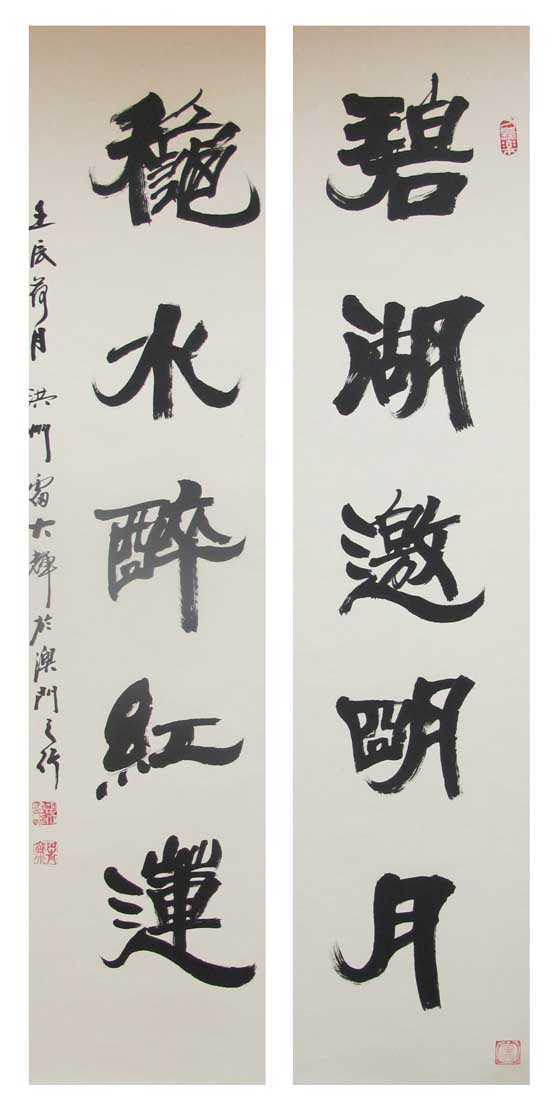 碧湖邀明月
穐水醉紅蓮
壬辰荷月 洪州雷大輝於澳門之行